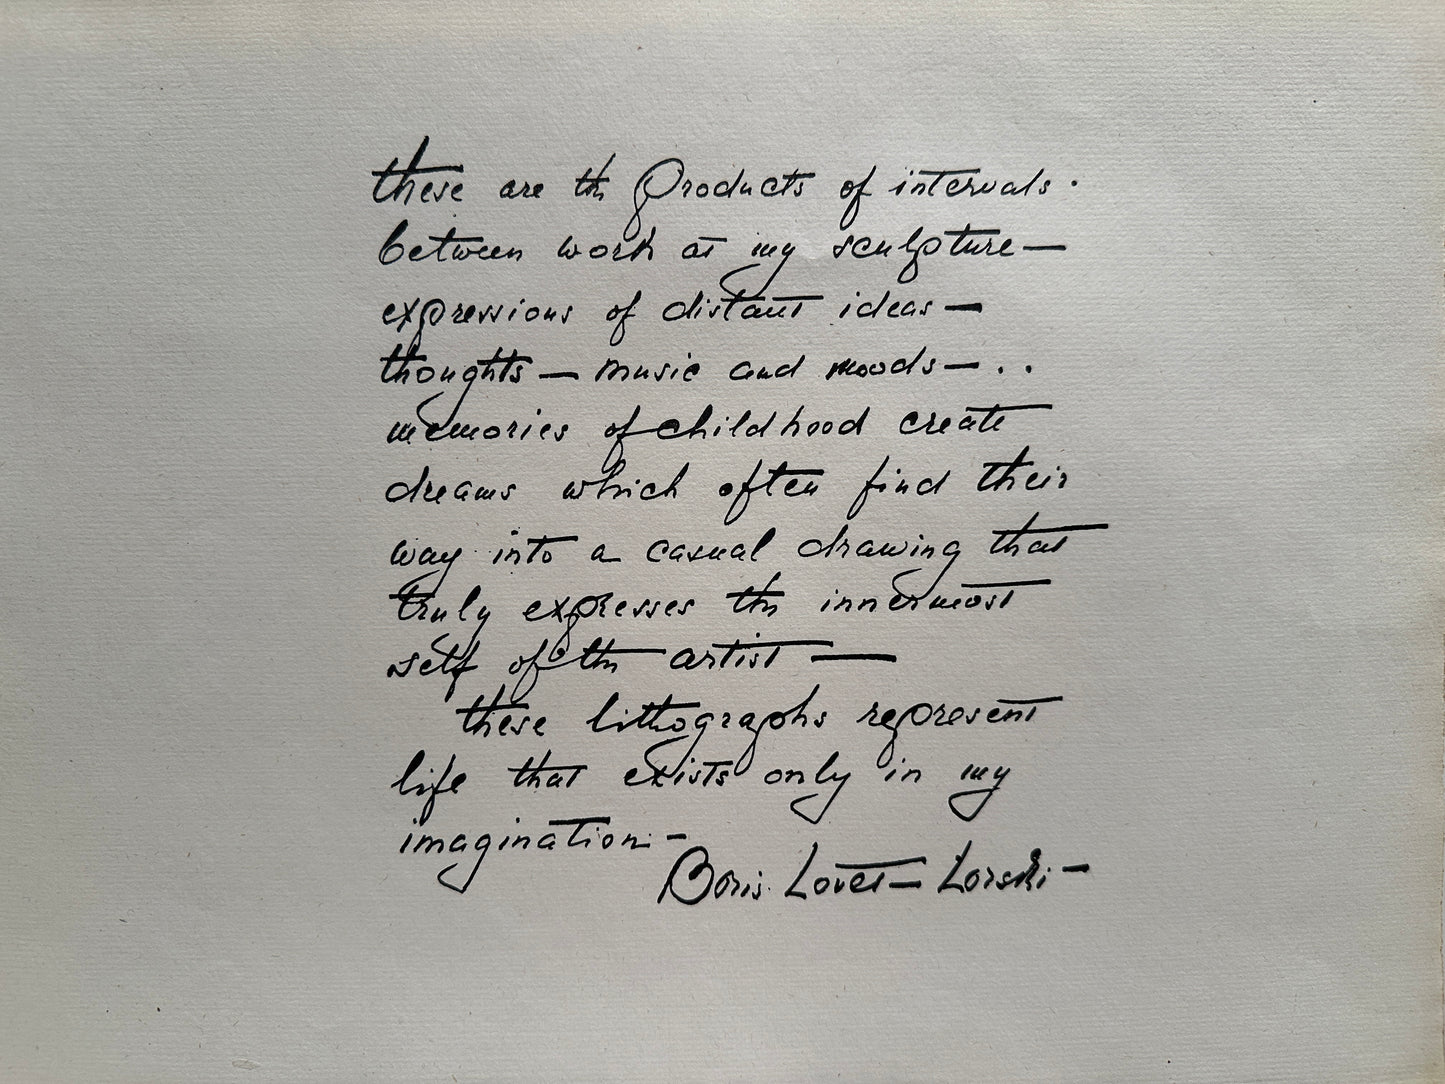 these are the Products of intervals.
between work at my sculpture —
expressions of distant ideas —
thoughts — music and moods — . .
memories of childhood create
dreams which often find their
way into a casual drawing that
truly expresses the innermost
self of the artist —
these lithographs represent
life that exists only in my
imagination. —
Boris Lovet - Lorski -